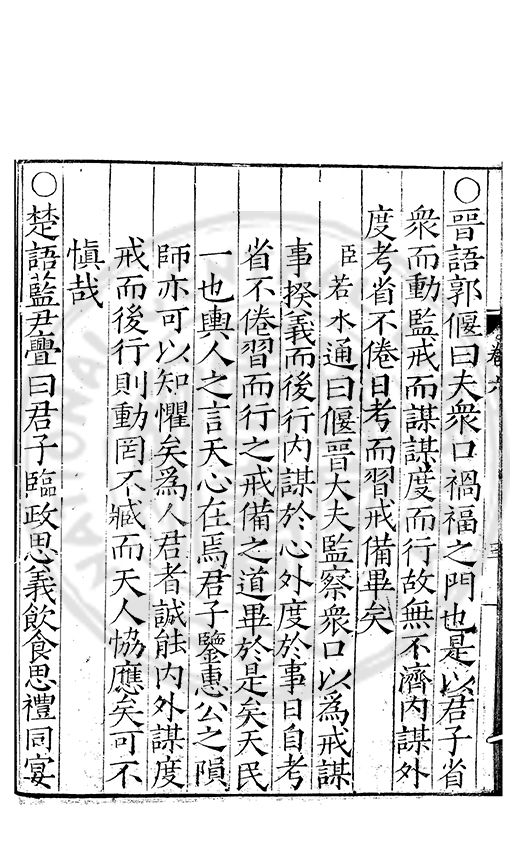 〇晉語郭偃曰夫衆口禍福之門也是以君子省
衆而動監戒而謀謀度而行故無不濟内謀外
度考省不倦日考而習戒備畢矣
臣若水通曰偃晉大夫監察衆口以爲戒謀
事揆義而後行内謀於心外度於事日自考
省不倦習而行之戒備之道畢於是矣天民
一也輿人之言天心在焉君子鑒惠公之隕
師亦可以知懼矣爲人君者誠能内外謀度
戒而後行則動罔不臧而天人協應矣可不
愼哉
〇楚語藍尹亹曰君子臨政思義飲食思禮同宴
卷六